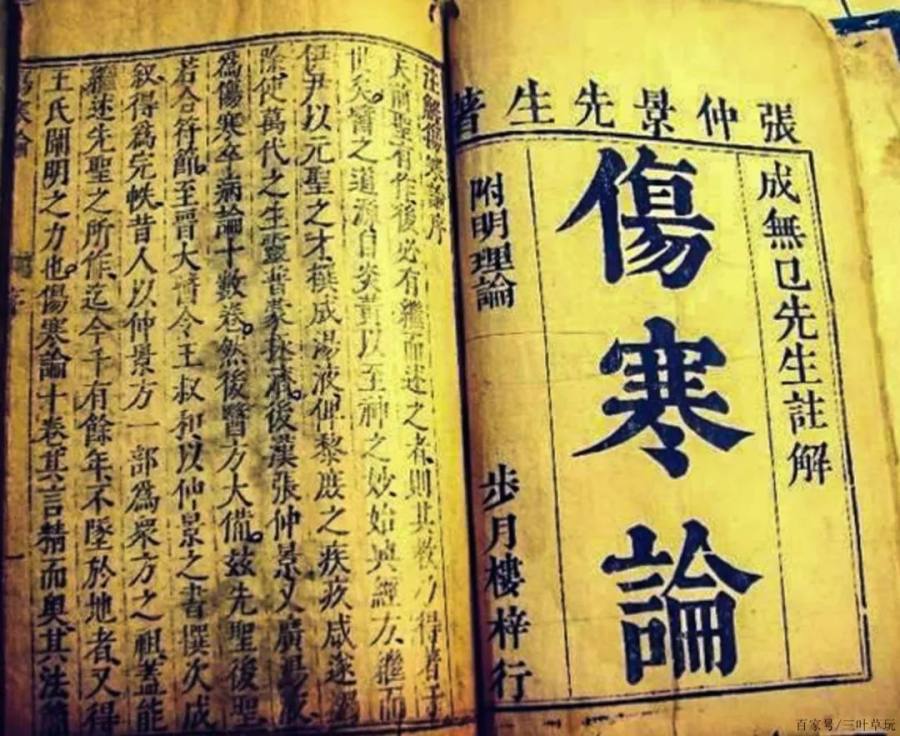 張仲景先生著
成無已先生註解
傷寒論
附明理論
步月樓梓行
注解傷寒論序
夫前聖有作後必有繼而述之者則其教乃得著于
世矣。醫之道源自炎黃以至神之妙始興經方繼而
伊尹以元聖之才撰成湯液俾黎庶之疾疢咸遂蠲
除使萬代之生靈普蒙拯濟。後漢張仲景又廣湯液
為傷寒卒病論十數卷。然後醫方大備。茲先聖後聖
若合符節。至晉大醫令王叔和以仲景之書撰次成
叙得為完帙昔人以仲景方一部為衆方之祖蓋能
繼述先聖之所作迄今千有餘年不墜於地者又得
王氏闡明之力也。傷寒論十卷其言精而奧其法簡
傷寒論
百家号/三叶草玩